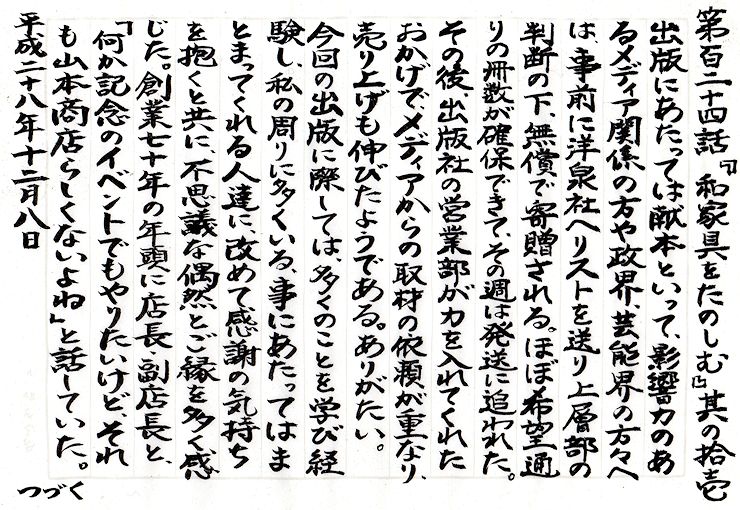 第百二十四話『和家具をたのしむ』其の拾壱
出版にあたっては献本といって、影響力のあ
るメディア関係の方や政界、芸能界の方々へ
は、事前に洋泉社へリストを送り上層部の
判断の下、無償で寄贈される。ほぼ希望通
りの冊数が確保できて、その週は発送に追われた。
その後、出版社の営業部が力を入れてくれた
おかげで、メディアからの取材の依頼が重なり、
売り上げも伸びたようである。ありがたい。
今回の出版に際しては、多くのことを学び経
験し、私の周りに多くいる、事にあたってはま
とまってくれる人達に、改めて感謝の気持ち
を抱くと共に、不思議な偶然とご縁を多く感
じた。創業七十年の年頭に店長、副店長と、
「何か記念のイベントでもやりたいけど、それ
も山本商店らしくないよね」と話していた。
つづく
平成二十八年十二月八日